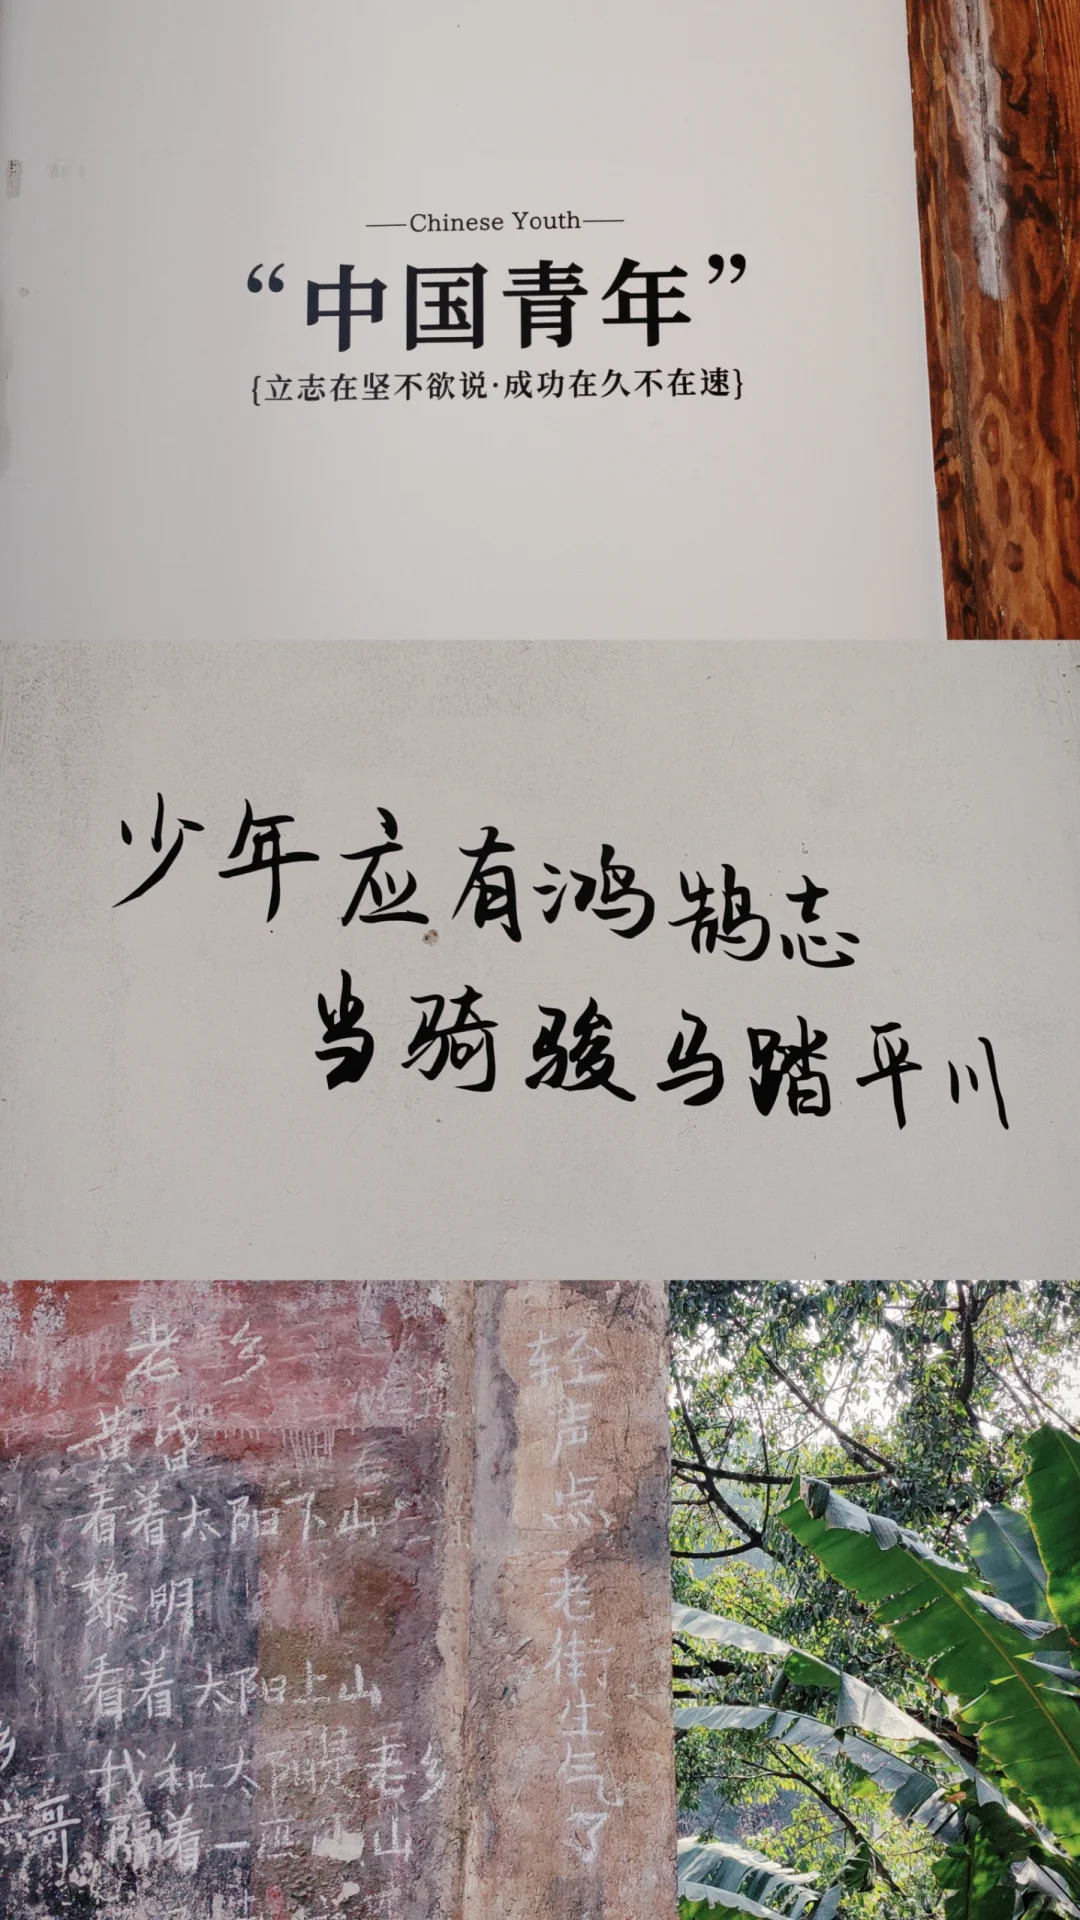 ——Chinese Youth——
“中国青年”
{立志在坚不欲说·成功在久不在速}
少年应有鸿鹄志
当骑骏马踏平川
老乡
黄昏
看着太阳下山
黎明
看着太阳上山
我和太阳是老乡
隔着一匹山
轻声点老街生气了
哥